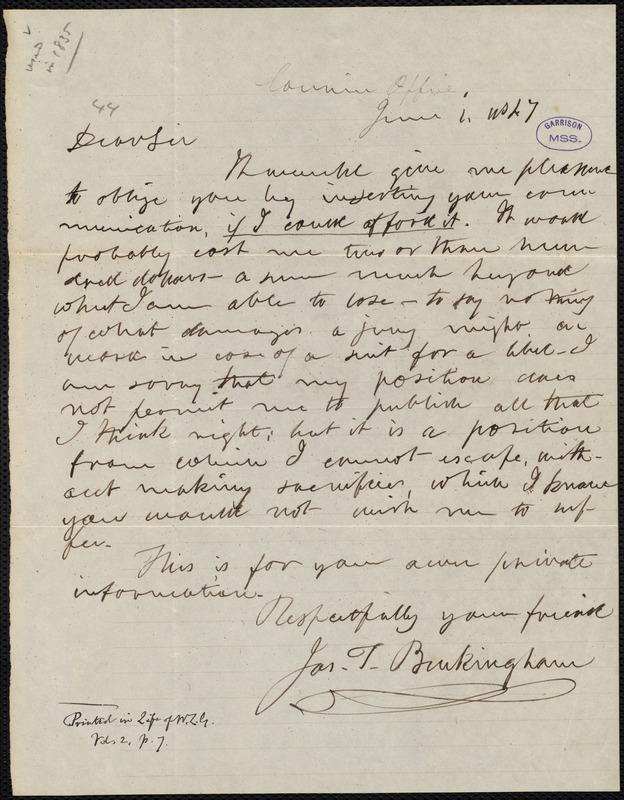 44
Courier Office
June 1, 1847
GARRISON
MSS.
Dear Sir
It would give me pleasure
to oblige you by inserting your com-
munication, if I could afford it. It would
probably cost me two or three hun-
dred dollars - a sum much beyond
what I am able to lose - to say nothing
of what damages a jury might a-
ward in case of a suit for a libel. I
am sorry that my position does
not permit me to publish all that
I think right; but it is a position
from which I cannot escape, with-
out making sacrifices, which I know
you would not wish me to suf-
fer.
This is for your own private
information.
Respectfully your friend
Jos. T. Buckingham
Printed in Life of W.L.G.
Vol. 2, p. 7.
in 1835